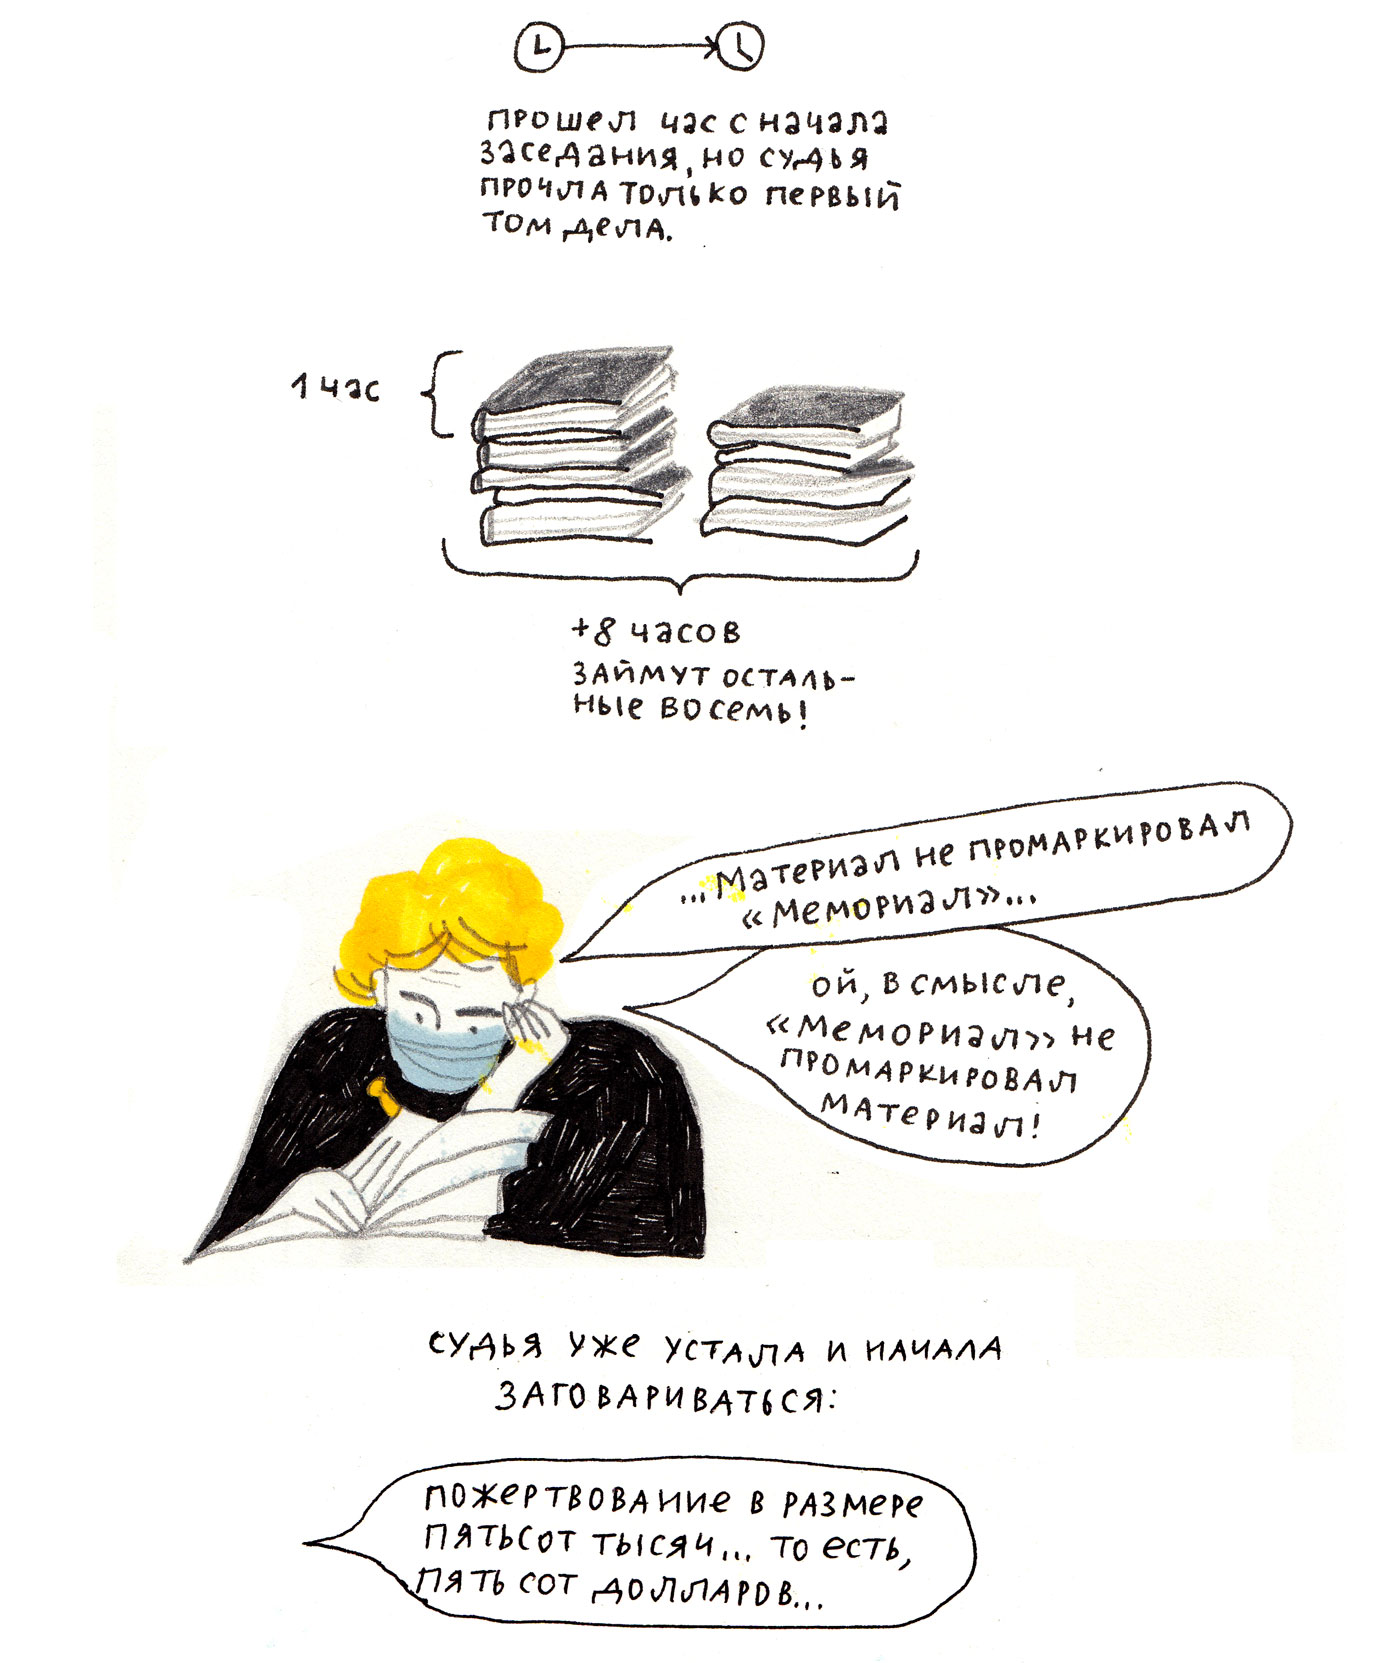 прошел час с начала
заседания, но судья
прочла только первый
том дела.
1 час
+8 часов
займут осталь-
ные восемь!
...материал не промаркировал
«Мемориал»...
ой, в смысле,
«Мемориал» не
промаркировал
материал!
судья уже устала и начала
заговариваться:
пожертвование в размере
пятьсот тысяч... то есть,
пятьсот долларов...